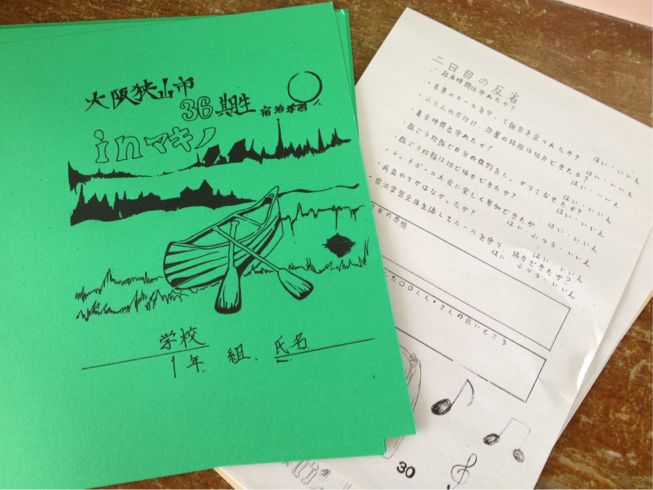 大阪狭山市
36期生
宿泊学習
inマキノ
学校
1年 組 氏名
二日目の反省
・起床時間は守れたか? はい・いいえ
・食事のルールを守って朝食を食べれたか? はい・いいえ
・ふとんの片付け、部屋の掃除は協力できたか? はい・いいえ
・集合時間を守れたか? はい・いいえ
・飯ごう炊飯で自分の役割をしっかりこなせたか? はい・いいえ
・飯ごう炊飯は班で協力できたか? はい・いいえ
大会に楽しく参加できたか はい・いいえ
はい ふつう いいえ
・宿泊学習全体を通してルールを守り、協力できたか?
はい ふつう いいえ
の感想
さんの良いところ
30